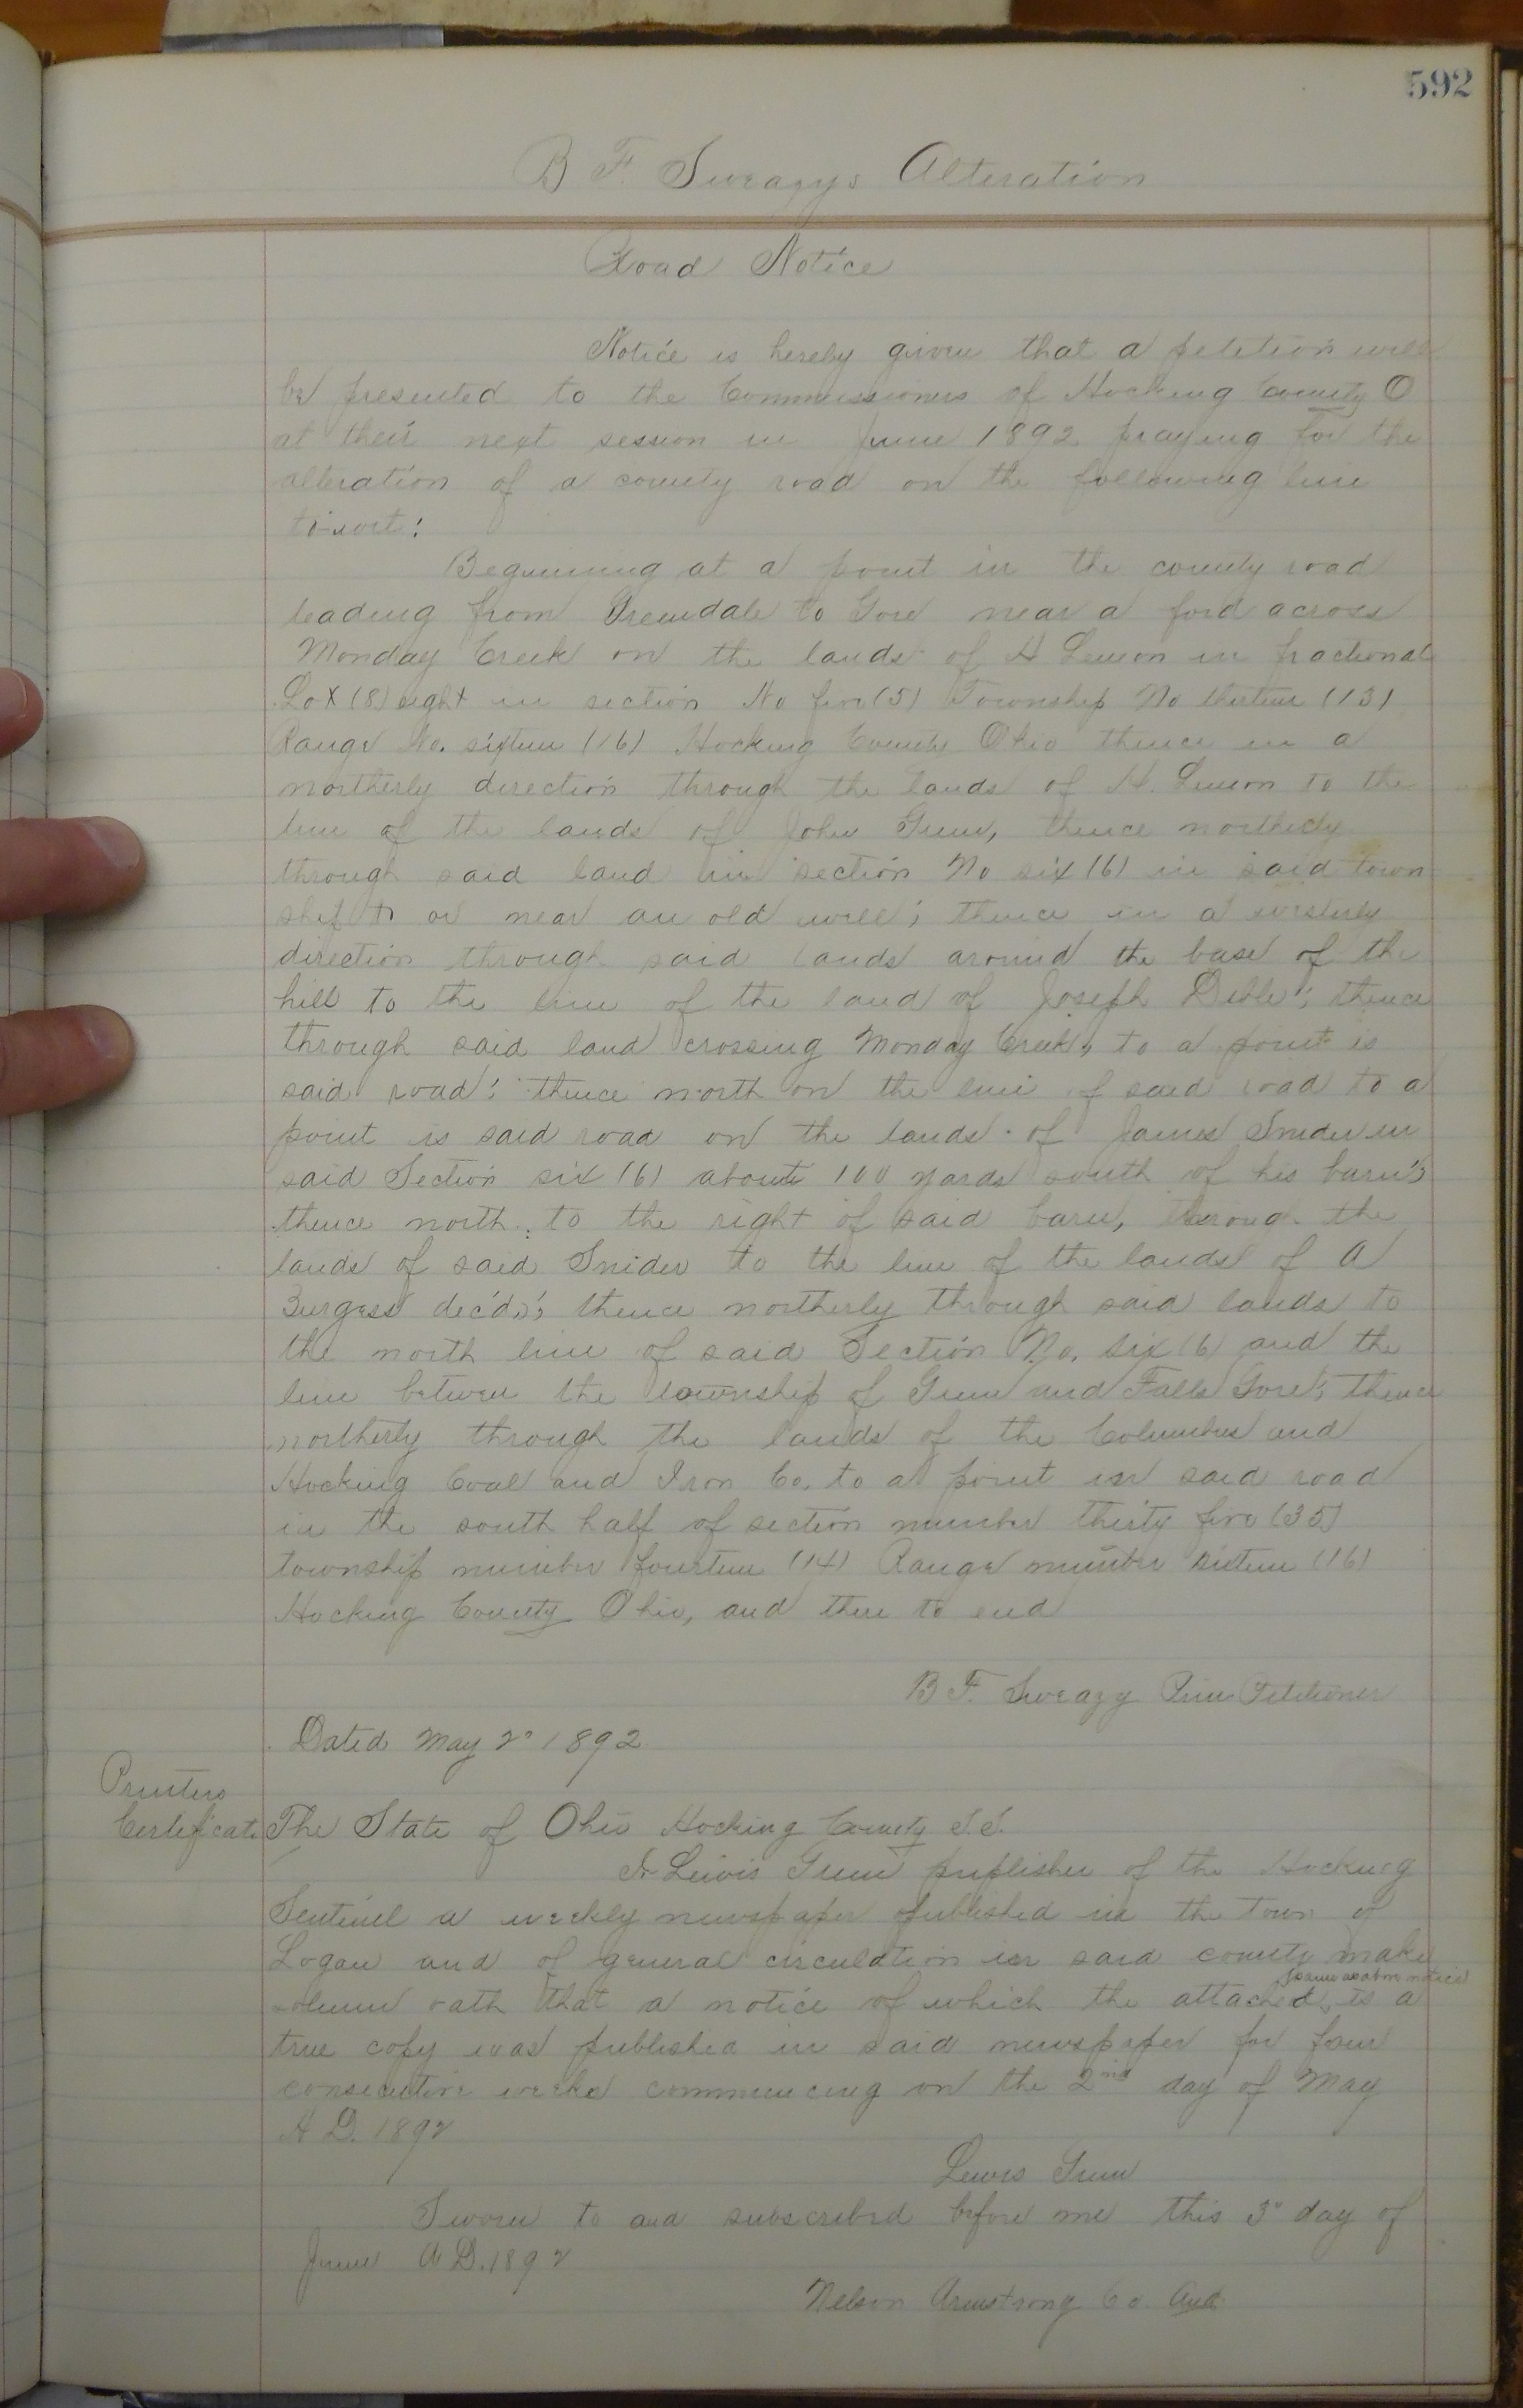 592
B F. Sweazys Alteration
Road Notice
Notice is hereby given that a petition will
be presented to the Commissioners of Hocking County O
at their next session in June 1892 praying for the
alteration of a county road on the following line
to-wit:
Beginning at a point in the county road
leading from Greendale to Gore near a ford across
Monday Creek on the lands of H Lemon in fractional
Lot (8) eight in section No five (5) Township No thirteen (13)
Range No. sixteen (16) Hocking County Ohio thence in a
northerly direction through the lands of H. Lemon to the
line of the lands of John Green, thence northerly
through said land in section No six (6) in said town
ship to or near an old well; thence in a westerly
direction through said lands around the base of the
hill to the line of the land of Joseph Dible; thence
through said land crossing Monday Creek, to a point is
said road; thence north on the line of said road to a
point is said road on the lands of James Snider in
said Section six (6) about 100 yards south of his barn;
thence north to the right of said barn, through the
lands of said Snider to the line of the lands of A
Burgess dec'd,; thence northerly through said lands to
the north line of said Section No. six (6) and the
line between the township of Green and Falls Gore; thence
northerly through the lands of the Columbus and
Hocking Coal and Iron Co. to a point in said road
in the south half of section number thirty five (35)
township number fourteen (14) Range number sixteen (16)
Hocking County Ohio, and there to end
B F. Sweazy Prin Petitioner
Dated May 2° 1892
Printers
Certificate
The State of Ohio Hocking County S.S.
I Lewis Green puplisher of the Hocking
Sentinel a weekly newspaper published in the town of
Logan and of general circulation in said county make
same as above notice
solemn oath that a notice of which the attached, is a
true copy was published in said newspaper for four
consecutive weeks commencing on the 2nd day of May
A D. 1892
Lewis Green
Sworn to and subscribed before me this 3° day of
June A D. 1892
Nelson Armstrong Co Aud.